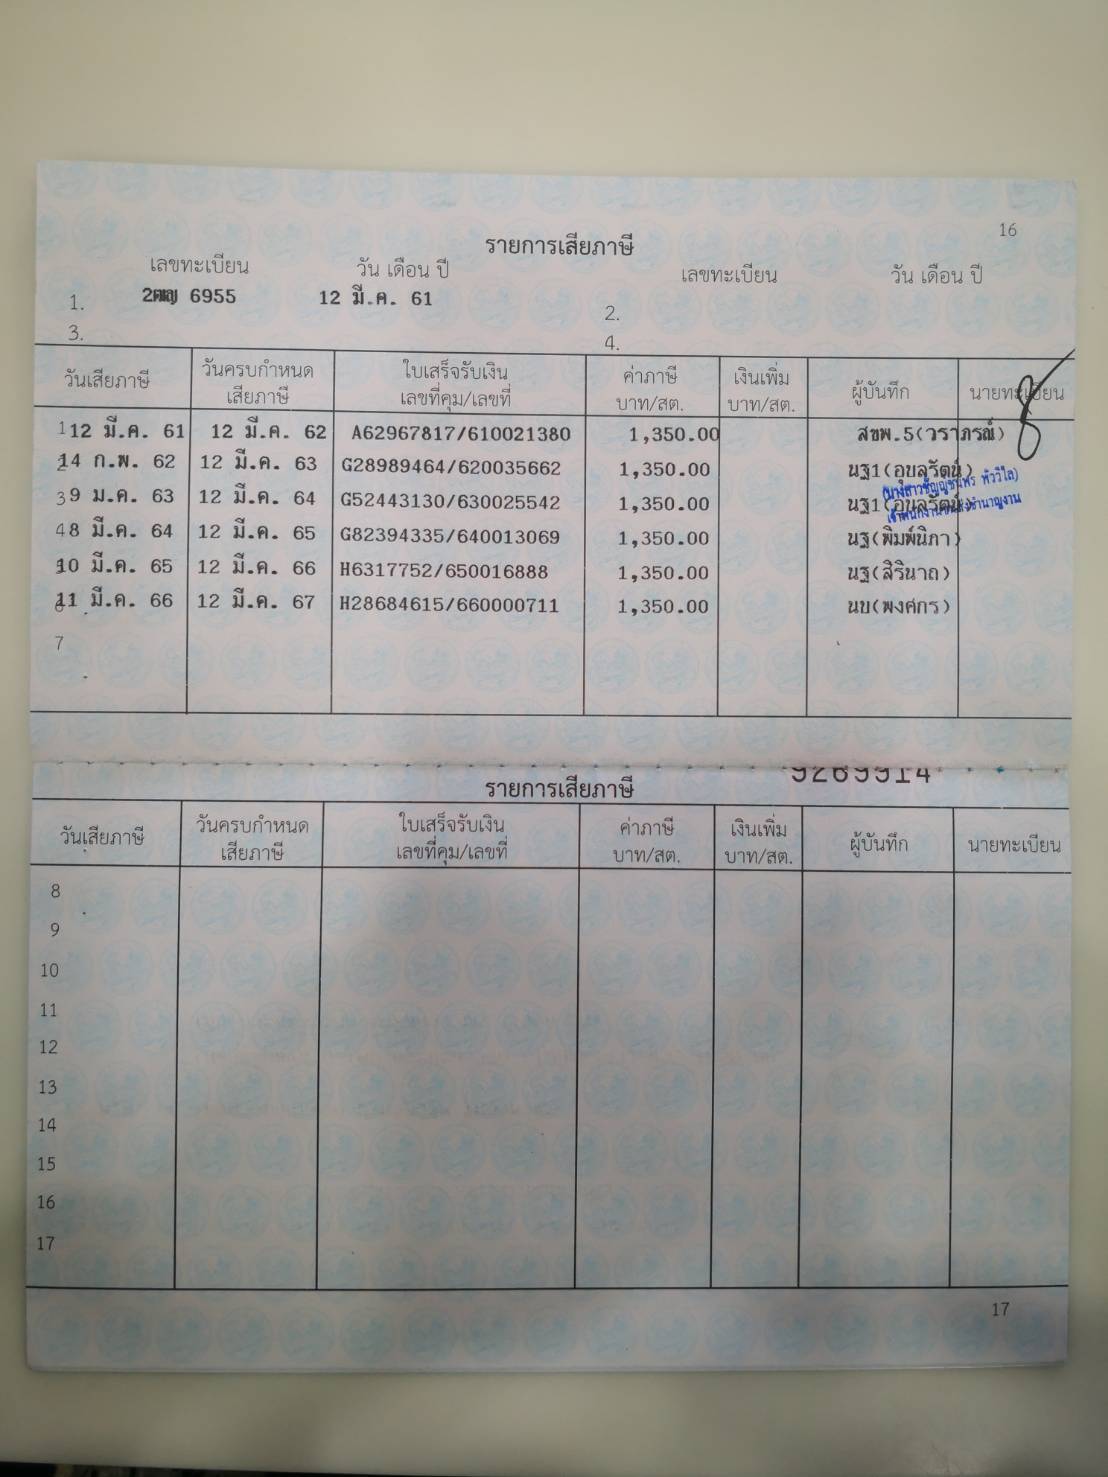 16
รายการเสียภาษี
เลขทะเบียน วัน เดือน ปี เลขทะเบียน วัน เดือน ปี
1. 6955 12 มี.ค. 61 2.
3. 4.
วันเสียภาษี วันครบกำหนดเสียภาษี ใบเสร็จรับเงิน เลขที่คุม/เลขที่ ค่าภาษี บาท/สต. เงินเพิ่ม บาท/สต. ผู้บันทึก นายทะเบียน
1 12 มี.ค. 61 12 มี.ค. 62 A62967817/610021380 1,350.00 สขพ.5(วราภรณ์)
14 ก.พ. 62 12 มี.ค. 63 G28989464/620035662 1,350.00 นฐ1(อุบลรัตน์)
3 9 ม.ค. 63 12 มี.ค. 64 G52443130/630025542 1,350.00 นฐ1(อุบลรัตน์)
4 8 มี.ค. 64 12 มี.ค. 65 G82394335/640013069 1,350.00 นฐ(พิมพ์นิภา)
10 มี.ค. 65 12 มี.ค. 66 H6317752/650016888 1,350.00 นฐ(สิรินาถ)
11 มี.ค. 66 12 มี.ค. 67 H28684615/660000711 1,350.00 นบ(พงศกร)
7
9269914
รายการเสียภาษี
วันเสียภาษี วันครบกำหนดเสียภาษี ใบเสร็จรับเงิน เลขที่คุม/เลขที่ ค่าภาษี บาท/สต. เงินเพิ่ม บาท/สต. ผู้บันทึก นายทะเบียน
8
9
10
11
12
13
14
15
16
17
17